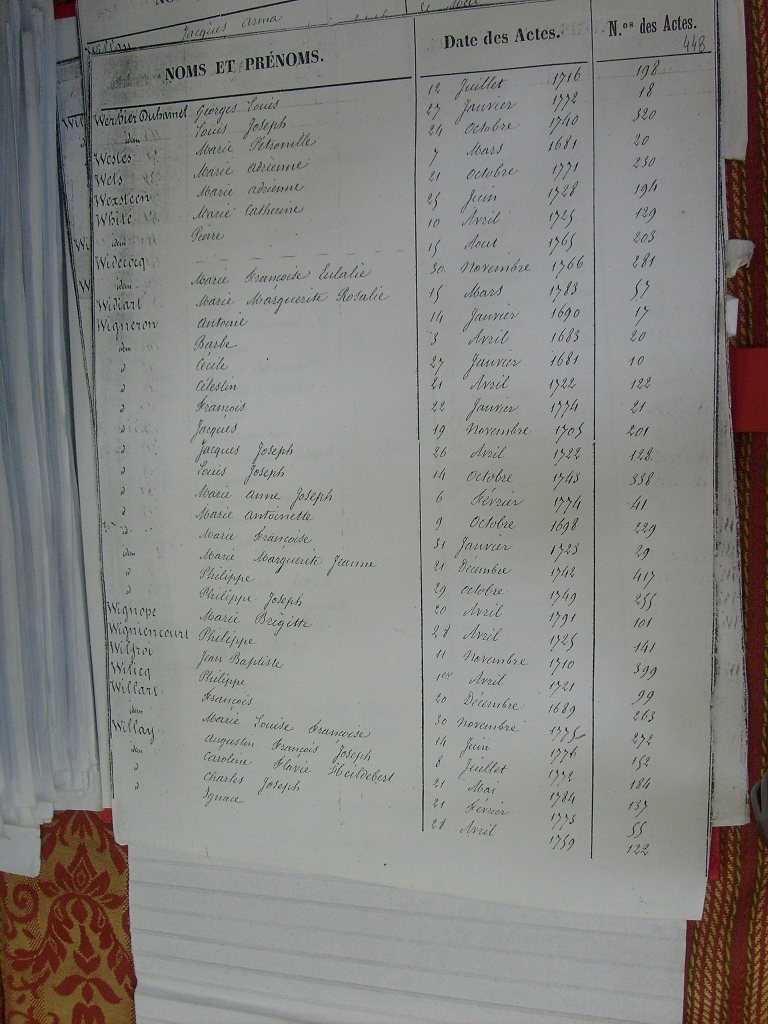 Jacques Arma
NOMS ET PRÉNOMS. Date des Actes. N.os des Actes.
448
Werbier Duhamel Georges Louis 12 Juillet 1716 198
idem Louis Joseph 27 Janvier 1772 18
Wesles Marie Pétronille 24 Octobre 1740 320
Wels Marie Adrienne 7 Mars 1681 20
Wexsteen Marie adrienne 21 Octobre 1771 230
White Marie Catherine 25 Juin 1728 194
idem Pierre 10 Avril 1725 129
Widcocq — 15 Aout 1765 203
idem Marie Françoise Eulalie 30 Novembre 1766 281
Widiart Marie Marguerite Rosalie 15 Mars 1783 57
Wigneron Antoine 14 Janvier 1690 17
idem Barbe 3 Avril 1683 20
d Cécile 27 Janvier 1681 10
d Célestin 21 Avril 1722 122
d François 22 Janvier 1774 21
d Jacques 19 Novembre 1705 201
d Jacques Joseph 26 Avril 1722 128
d Louis Joseph 14 Octobre 1743 338
d Marie Anne Joseph 6 Février 1774 41
d Marie Antoinette 9 Octobre 1698 229
id Marie Françoise 31 Janvier 1723 29
idem Marie Marguerite Jeanne 21 Décembre 1742 417
d Philippe 29 octobre 1749 255
d Philippe Joseph 20 Avril 1791 101
Wignope Marie Brigitte 28 Avril 1725 141
Wignoncourt Philippe 11 Novembre 1710 399
Wilfroi Jean Baptiste 1er Avril 1721 99
Wilicq Philippe 20 Décembre 1689 263
Willart François 30 Novembre 1775 272
idem Marie Louise Françoise 14 Juin 1776 152
Willay Augustin François Joseph 8 Juillet 1772 184
idem Caroline Flavie Heildebert 21 Mai 1784 137
d Charles Joseph 21 Février 1773 55
d Ignace 28 Avril 1759 122